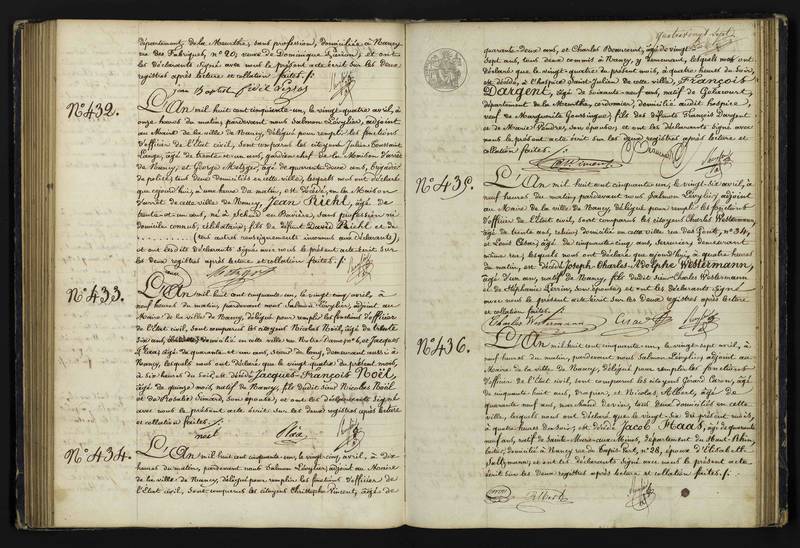 département de la Meurthe, sans profession, domiciliée à Nancy
rue des Fabriques, n° 20, veuve de Dominique et ont
les déclarants signé avec nous le présent acte écrit sur les deux
registres après lecture et collation faites./.
N° 432.
L'An mil huit cent cinquante-un, le vingt-quatre avril, à
onze heures du matin, pardevant nous Salmon Lévylier, adjoint
au Maire de la ville de Nancy, délégué pour remplir les fonctions
d'officier de l'Etat civil, sont comparus les citoyens Julien Toussaint
Lange, âgé de trente-un ans, gardien chef de la Maison d'arrêt
de Nancy, et George Metzger, âgé de quarante deux ans, brigadier
de police, tous deux domiciliés en cette ville, lesquels nous ont déclaré
que ajourd'hui, à une heure du matin, est décédé, en la Maison
d'arrêt de cette ville de Nancy, Jean Riehl, âgé de
trente-et-un ans, né à en Bavière, sans profession ni
domicile connus, célibataire; fils de défunt David Riehl et de
.......... (tous autres renseignements inconnus aux déclarants),
et ont lesdits déclarants signé avec nous le présent acte écrit sur
les deux registres après lecture et collation faites./.
N° 433.
L'An mil huit cent cinquante-un, le vingt-cinq avril, à
neuf heures du matin, pardevant nous Salmon Lévylier, adjoint au
Maire de la ville de Nancy, délégué pour remplir les fonctions d'officier
de l'Etat civil, sont comparus les citoyens Nicolas Noël, âgé de trente
six ans, domicilié en cette ville rue Notre Dame n° 6, et Jacques
âgé de quarante-et-un ans, demeurant aussi à
Nancy, lesquels nous ont déclaré que le vingt-quatre du présent mois,
à six heures du soir, est décédé Jacques-François Noël,
âgé de quinze mois, natif de Nancy, fils dudit sieur Nicolas Noël
et de Rosalie Simard, son épouse, et ont les déclarants signé
avec nous le présent acte écrit sur les deux registres après lecture
et collation faites./.
N° 434.
L'An mil huit cent cinquante-un, le vingt-cinq avril, à dix
heures du matin, pardevant nous Salmon Lévylier, adjoint au Maire
de la ville de Nancy, délégué pour remplir les fonctions d'officier de
l'Etat civil, sont comparus les citoyens Christophe Vincent, âgé de
quatre vingt sept
quarante-deux ans, et Charles âgé de vingt
sept ans, tous deux commis à Nancy, y demeurant, lesquels nous ont
déclaré que le vingt-quatre du présent mois, à quatre heures du soir,
est décédé, à l'hospice Saint-Julien de cette ville, François
Dargent, âgé de soixante-neuf ans, natif de Gélacourt,
département de la Meurthe, cordonnier, domicilié audit hospice,
veuf de Marguerite fils des défunts François Dargent
et de Marie son épouse; et ont les déclarants signé avec
nous le présent acte écrit sur les deux registres après lecture et
collation faites./.
N° 435.
L'An mil huit cent cinquante-un, le vingt-six avril, à
neuf heures du matin, pardevant nous Salmon Lévylier, adjoint
au Maire de la ville de Nancy, délégué pour remplir les fonctions
d'officier de l'Etat civil, sont comparus les citoyens Charles Westermann,
âgé de trente ans, domicilié en cette ville rue n° 34,
et Louis César, âgé de cinquante-cinq ans, serrurier, demeurant
même rue, lesquels nous ont déclaré que ajourd'hui, à quatre heures
du matin, est décédé Joseph-Charles-Adolphe Westermann,
âgé d'un an, natif de Nancy, fils dudit sieur Charles Westermann
et de Stéphanie Perrin, son épouse; et ont les déclarants signé
avec nous le présent acte écrit sur les deux registres après lecture
et collation faites./.
Charles Westermann
N° 436.
L'An mil huit cent cinquante-un, le vingt-sept avril, à
neuf heures du matin, pardevant nous Salmon Lévylier, adjoint au
Maire de la ville de Nancy, délégué pour remplir les fonctions
d'officier de l'Etat civil, sont comparus les citoyens Gérard âgé
de cinquante-huit ans, drapier, et Nicolas Albert, âgé de
quarante-neuf ans, tous deux domiciliés en cette
ville, lesquels nous ont déclaré que le vingt-six du présent mois,
à quatre heures du soir, est décédé Jacob Haas, âgé de quarante
neuf ans, natif de Sainte-Marie-aux-Mines, département du Haut-Rhin,
domicilié à Nancy rue du n° 28, époux d'Elisabeth
et ont les déclarants signé avec nous le présent acte
écrit sur les deux registres après lecture et collation faites./.
Albert